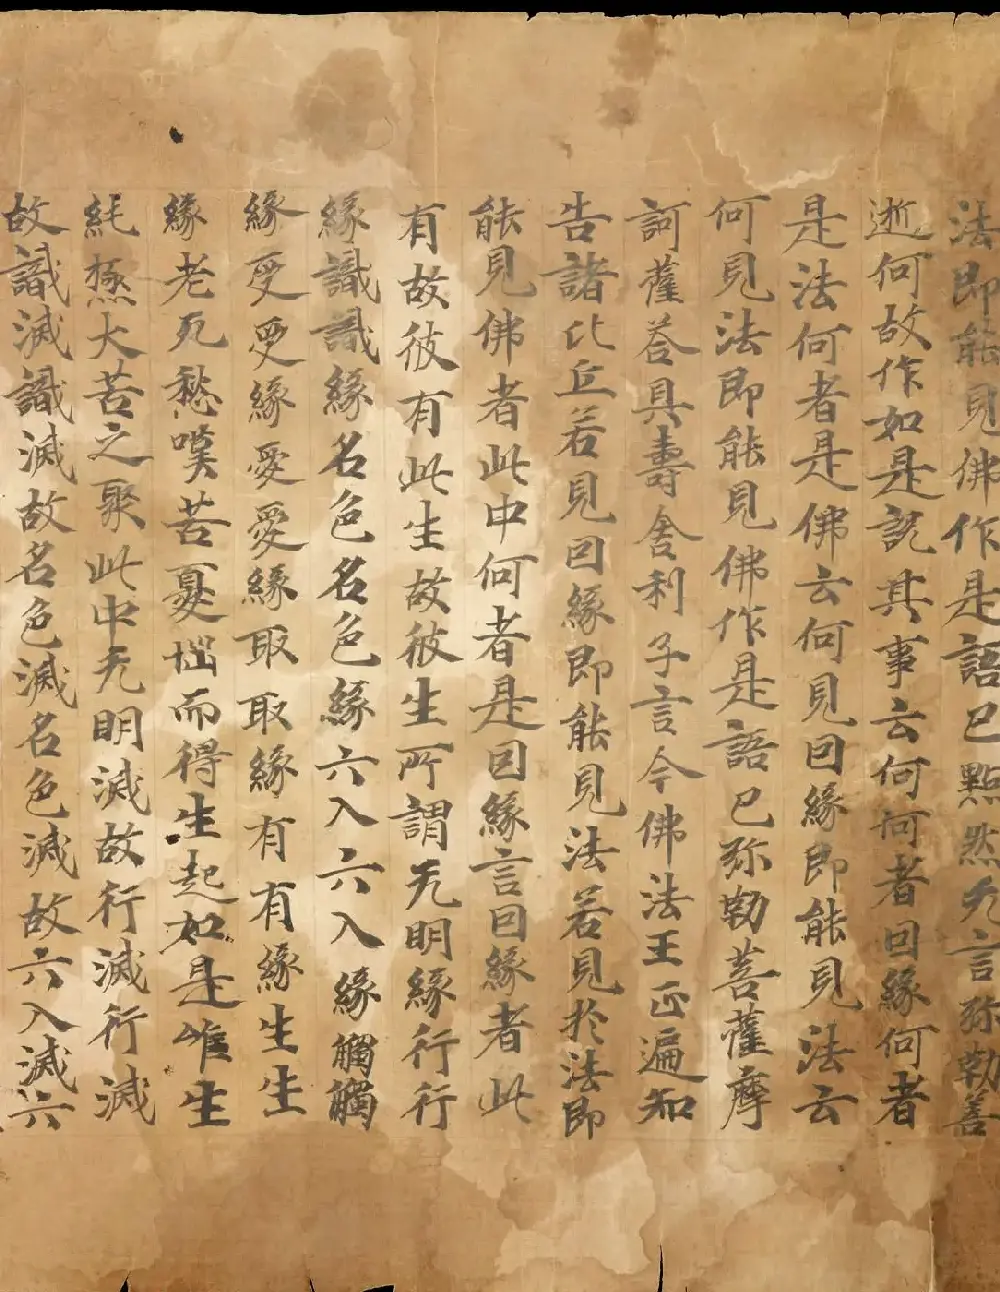 法即能見佛作是語已黙然无言弥勒善
逝何故作如是說其事云何何者囙緣何者
是法何者是佛云何見囙緣即能見法云
何見法即能見佛作是語已弥勒菩薩摩
訶薩荅具壽舍利子言今佛法王正遍知
告諸比丘若見囙緣即能見法若見於法即
能見佛者此中何者是囙緣言囙緣者此
有故彼有此生故彼生所謂无明緣行行
緣識識緣名色名色緣六入六入緣觸觸
緣受受緣愛愛緣取取緣有有緣生生
緣老死愁嘆苦憂惱而得生起如是唯生
純極大苦之聚此中无明滅故行滅行滅
故識滅識滅故名色滅名色滅故六入滅六